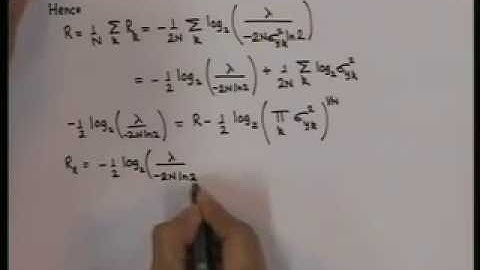 Hence
R = 1/N Σ_k R_k = - 1/2N Σ_k log₂ (λ / -2Nσ²_yk ln2)
= - 1/2 log₂ (λ / -2N ln2) + 1/2N Σ_k log₂ σ²_yk
- 1/2 log₂ (λ / -2N ln2) = R - 1/2 log₂ (Π_k σ²_yk)^1/N
R_k = - 1/2 log₂ (λ / -2N ln2